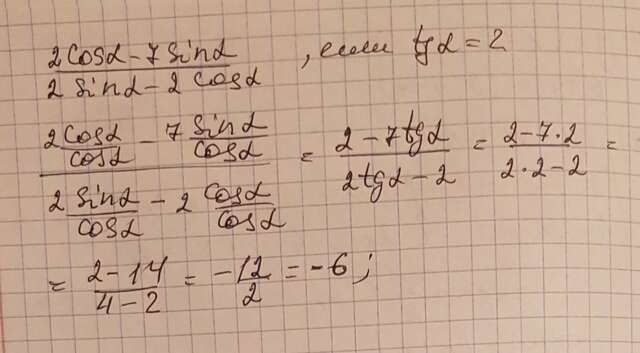 (2cosα - 7sinα)/(2sinα - 2cosα), если tgα = 2
(2cosα/cosα - 7 sinα/cosα)/(2 sinα/cosα - 2 cosα/cosα) = (2 - 7tgα)/(2tgα - 2) = (2 - 7·2)/(2·2 - 2) =
= (2 - 14)/(4 - 2) = -12/2 = -6;